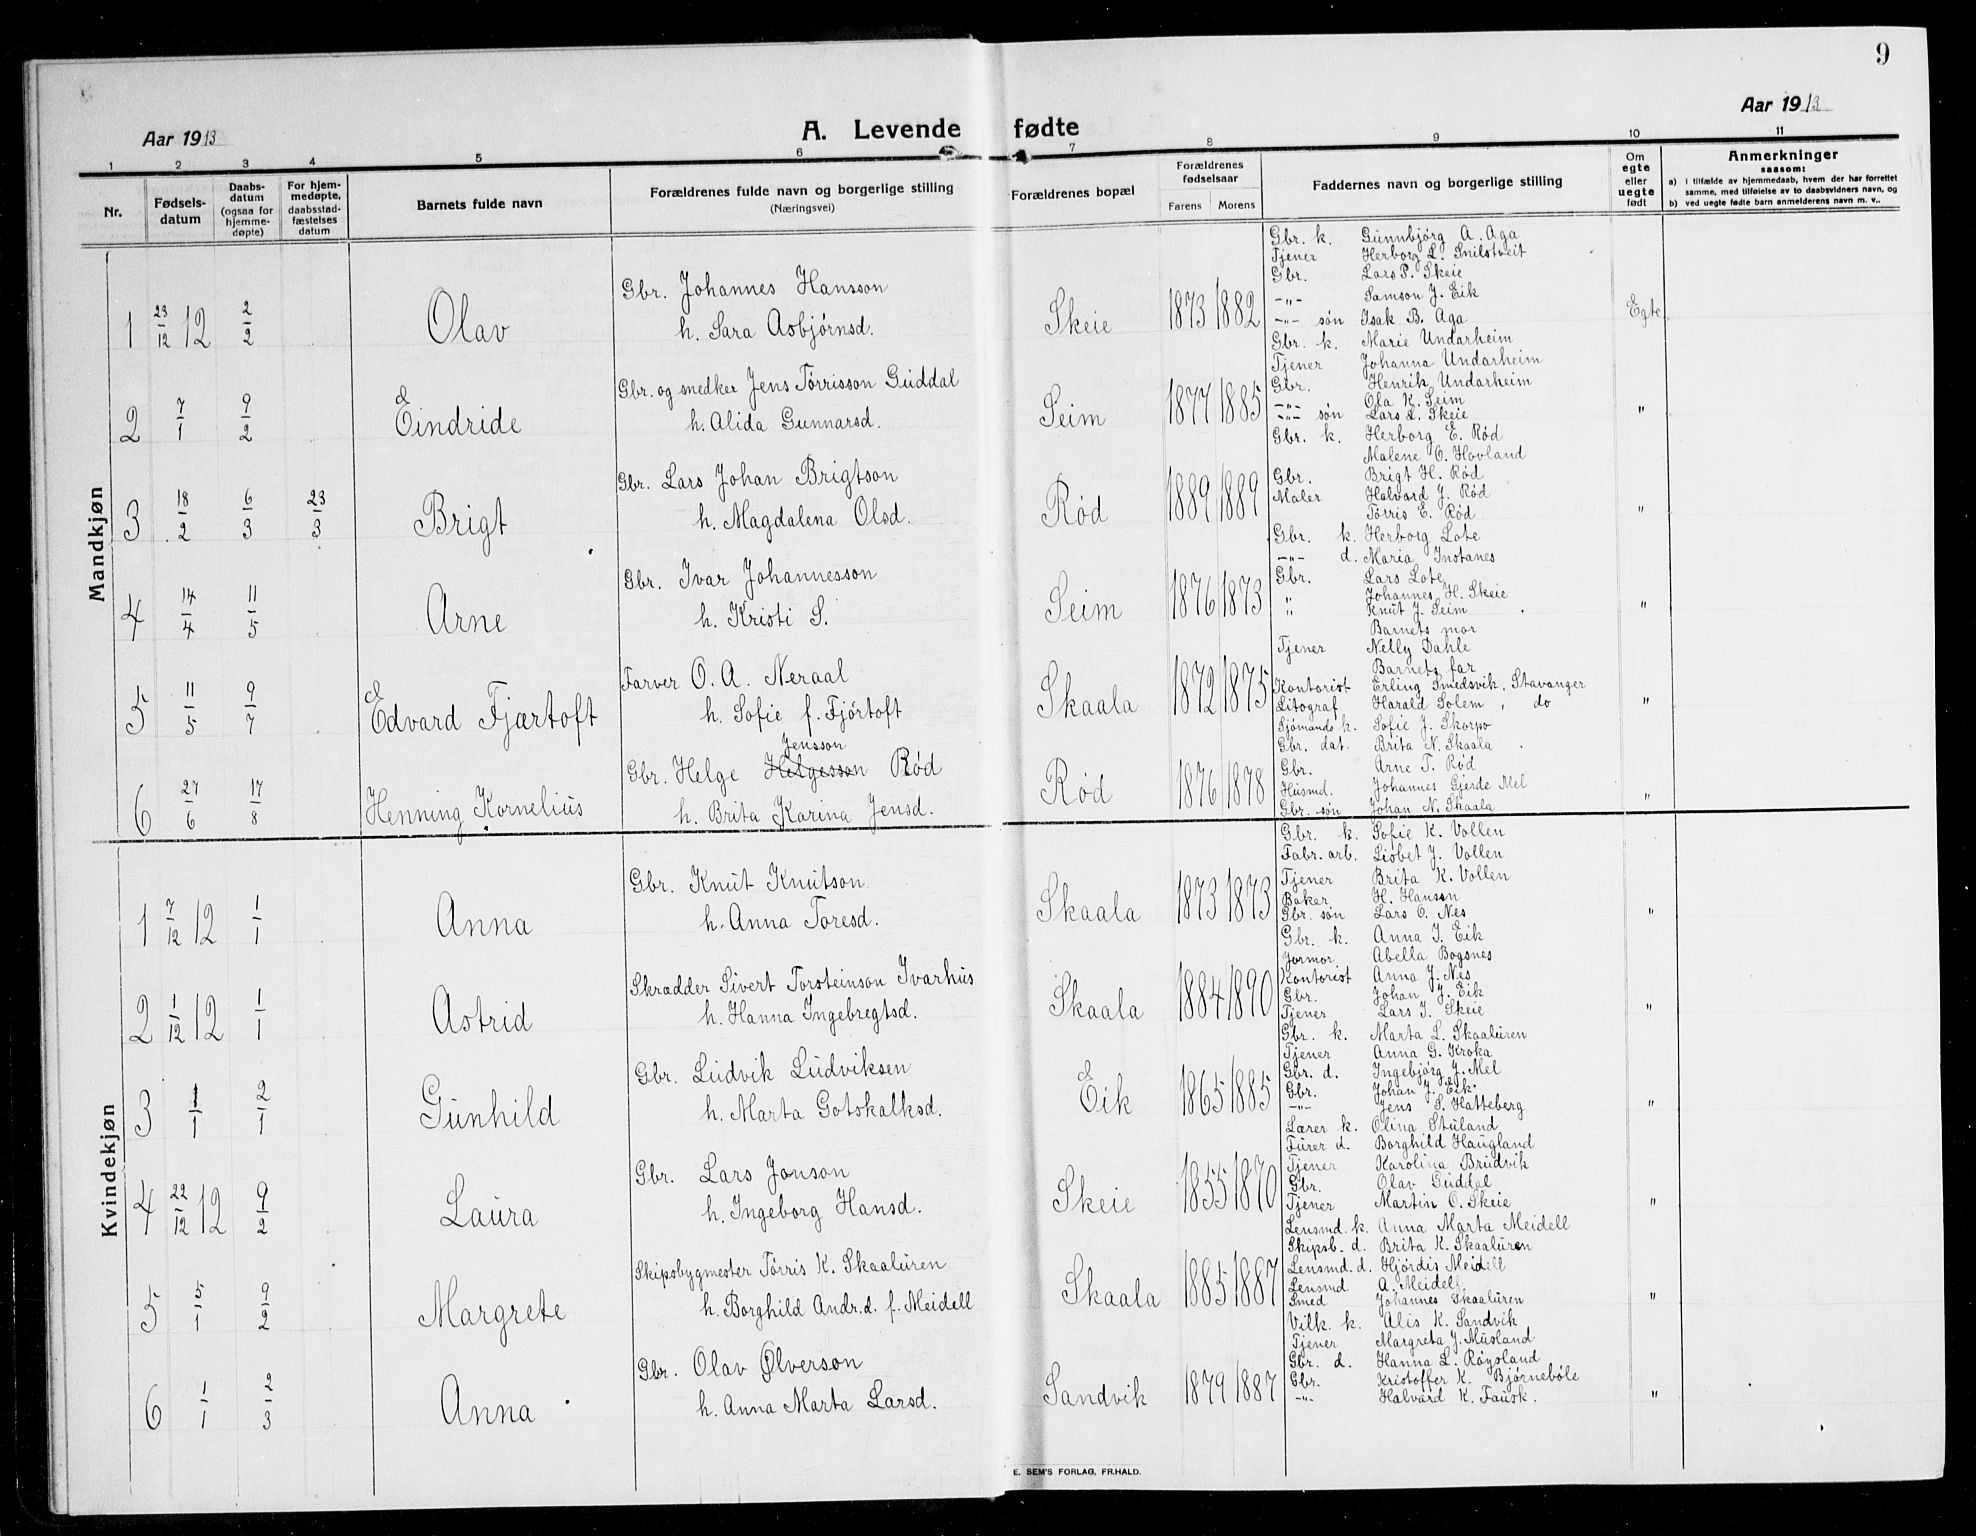 9
Aar 1913
A. Levende fødte
Aar 1913
1 2 3 4 5 6 7 8 9 10 11
Nr.
Fødsels-datum
Daabs-datum (ogsaa for hjemme-døpte)
For hjem-medøpte, daabsstad-fæstelses datum
Barnets fulde navn
Forældrenes fulde navn og borgerlige stilling
(Næringsvei)
Forældrenes bopæl
Forældrenes fødselsaar
Farens Morens
Faddernes navn og borgerlige stilling
Om egte eller uegte født
Anmerkninger
saasom:
a) i tilfælde av hjemmedaab, hvem der har forrettet samme, med tilføielse av to daabsvidners navn, og
b) ved uegte fødte barn anmelderens navn m. v..
Mandkjøn
1 23/12 12 2/2 Olav
Gbr. Johannes Hansson
h. Sara Asbjørnsd.
Skeie 1873 1882
Gbr. k. Gunnbjørg A. Aga
Tjener Herborg L. Snilstveit
Gbr. Lars P. Skeie
-"- Samson J. Eik
-"- søn Isak B. Aga
Egte
2 7/1 9/2 Eindride
Gbr. og snedker Jens Tørrisson Guddal
h. Alida Gunnarsd.
Seim 1877 1885
Gbr. k. Marie Undarheim
Tjener Johanna Undarheim
Gbr. Henrik Undarheim
-"- Ola K. Seim
-"- søn Lars L. Skeie
"
3 18/2 6/3 23/3 Brigt
Gbr. Lars Johan Brigtson
h. Magdalena Olsd.
Rød 1889 1889
Gbr. k. Herborg E. Rød
Malene O. Hovland
Gbr. Brigt H. Rød
Maler Halvard J. Rød
Tørris E. Rød
"
4 14/4 11/5 Arne
Gbr. Ivar Johannesson
h. Kristi S.
Seim 1876 1873
Gbr. k. Herborg Lote
-"- d. Maria Instanes
Gbr. Lars Lote
" Johannes H. Skeie
" Knut J. Seim
"
5 11/5 9/7 Edvard Fjærtoft
Farver O. A. Neraal
h. Sofie f. Fjørtoft
Skaala 1872 1875
Barnets mor
Tjener Nelly Dahle
Barnets far
Kontorist Erling Smedsvik, Stavanger
Litograf Harald Solem, do
"
6 27/6 17/8 Henning Kornelius
Jensson
Gbr. Helge Helgesson Rød
h. Brita Karina Jensd.
Rød 1876 1878
Sjømands k. Sofie J. Skorpo
Gbr. dat. Brita N. Skaala
Gbr. Arne T. Rød
Husmd. Johannes Gjerde Mel
Gbr. søn Johan N. Skaala
"
Kvindekjøn
1 7/12 12 1/1 Anna
Gbr. Knut Knutson
h. Anna Toresd.
Skaala 1873 1873
Gbr. k. Sofie K. Vollen
Fabr. arb. Lisbet J. Vollen
Tjener Brita K. Vollen
Baker H. Hansen
Gbr. søn Lars O. Nes
"
2 1/12 12 1/1 Astrid
Skrædder Sivert Torsteinson Ivarhus
h. Hanna Ingebregtsd.
Skaala 1884 1890
Gbr. k. Anna I. Eik
Jormor Abella Bogsnes
Kontorist Anna J. Nes
Gbr. Johan J. Eik
Tjener Lars I. Skeie
"
3 1/1 2/1 Gunhild
Gbr. Ludvik Ludviksen
h. Marta Gotskalksd.
Eik 1865 1885
Gbr. k. Marta L. Skaaluren
Tjener Anna G. Kroka
Gbr. d. Ingebjørg J. Mel
Gbr. Johan J. Eik.
-"- Jens S. Hatteberg
"
4 22/12 12 9/2 Laura
Gbr. Lars Jonson
h. Ingeborg Hansd.
Skeie 1855 1870
Lærer k. Olina Stuland
Furer d. Borghild Haugland
Tjener Karolina Brudvik
Gbr. Olav Guddal
Tjener Martin O. Skeie
"
5 5/1 9/2 Margrete
Skipsbygmester Tørris K. Skaaluren
h. Borghild Andr.d. f. Meidell
Skaala 1885 1887
Lensmd. k. Anna Marta Meidell
Skipsb. d. Brita K. Skaaluren
Lensmd. d. Hjørdis Meidell
Lensmd. A. Meidell
Smed Johannes Skaaluren
"
6 1/1 2/3 Anna
Gbr. Olav Ølverson
h. Anna Marta Larsd.
Sandvik 1879 1887
Vilk. k. Alis K. Sandvik
Tjener Margreta J. Musland
Gbr. d. Hanna L. Røysland
Gbr. Kristoffer K. Bjørnebøle
-"- Halvard K. Fausk.
"
E. SEM'S FORLAG, FR.HALD.